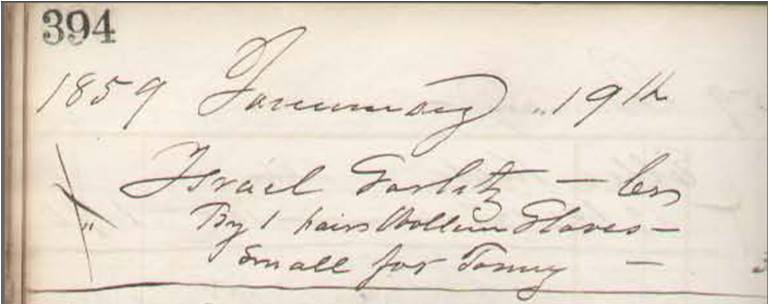 394
1859 January " 19th
Israel Garlitz — Cr
"
By 1 pairs Wollin Gloves —
Small for Tommy —